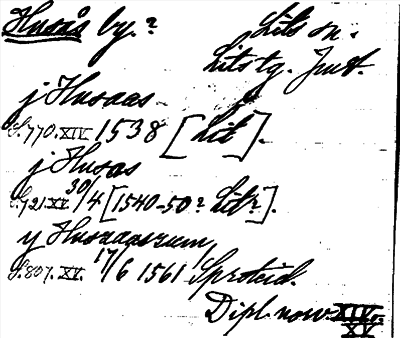 Husås by.? Lits sn.
Lits tg. Jmt.
j Husaas
S.770.XIV 1538 [Lit].
j Husas
S.721.XV 30/4 [1540-50? Lit?].
y Husaaszum
S.807.XV. 17/6 1561 Sproteid.
Dipl. norv. XIV.
XV